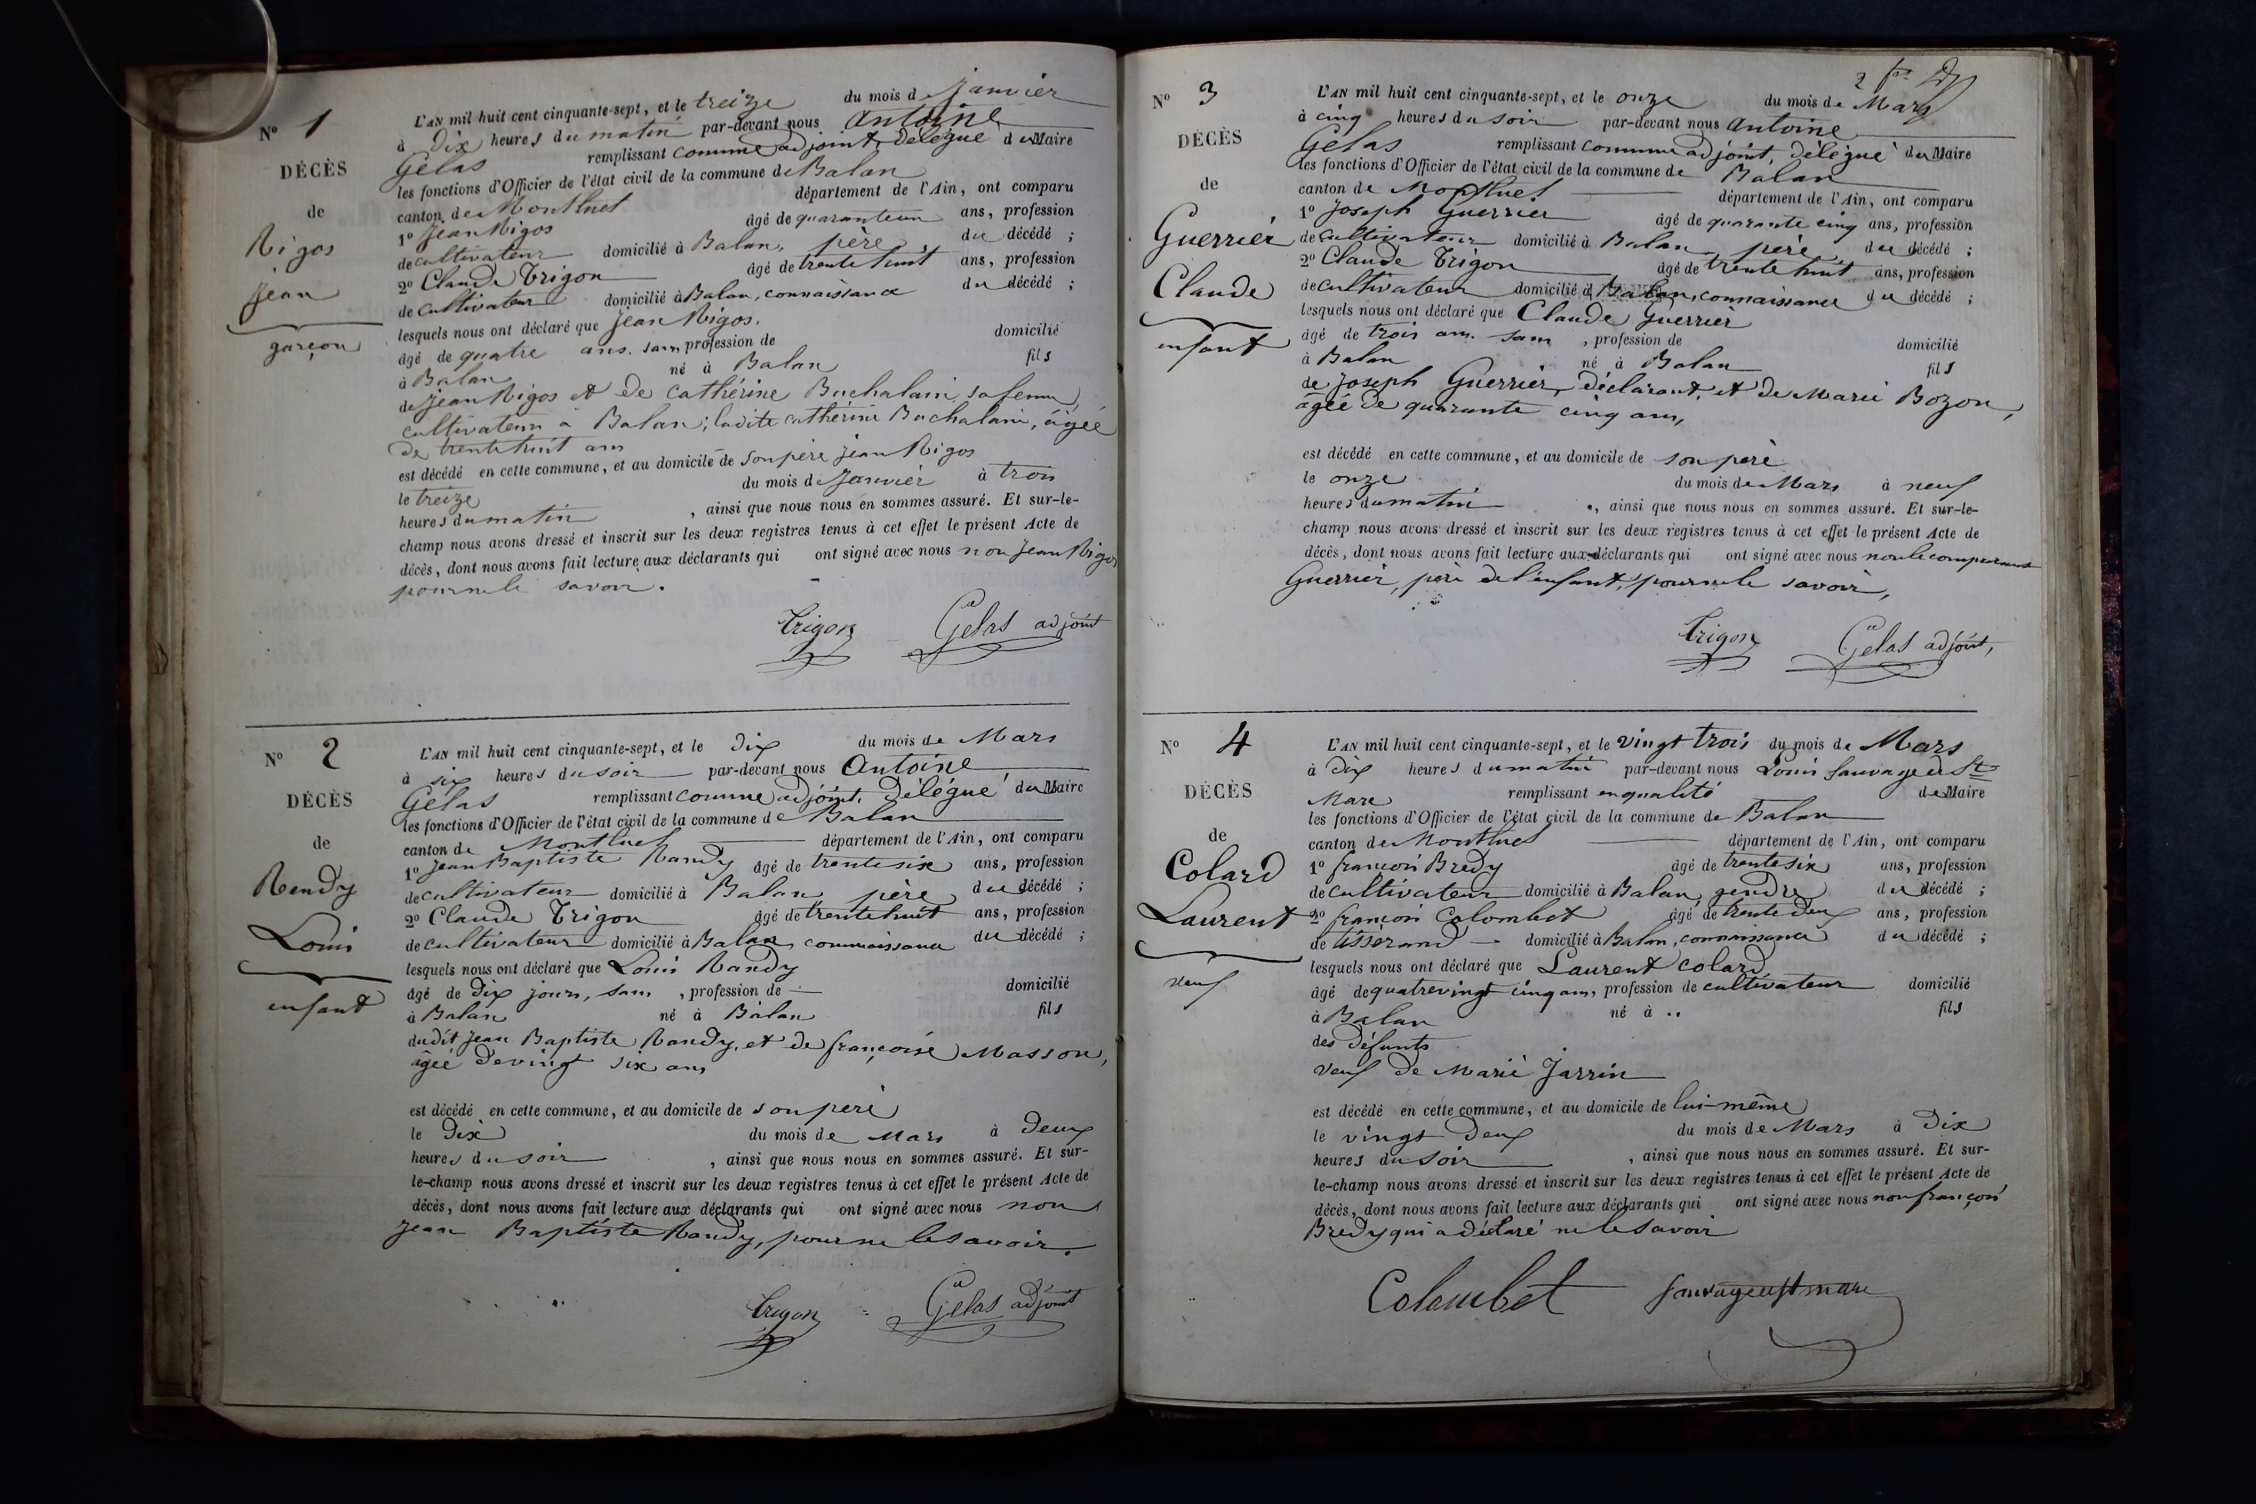 N° 1
DÉCÈS
de
Rigos
Jean
garçon
L'AN mil huit cent cinquante-sept, et le treize du mois de janvier
à dix heures du matin par-devant nous Antoine
Gelas remplissant comme adjoint, délégué du Maire
les fonctions d'Officier de l'état civil de la commune de Balan
canton de Montluel département de l'Ain, ont comparu
1° Jean Rigos âgé de quarante un ans, profession
de cultivateur domicilié à Balan, père du décédé ;
2° Claude Trigon âgé de trente huit ans, profession
de cultivateur domicilié à Balan, connaissance du décédé ;
lesquels nous ont déclaré que Jean Rigos.
âgé de quatre ans. sans profession de domicilié
à Balan né à Balan fils
de Jean Rigos et de Cathérine Buchalain, sa femme
cultivateurs à Balan; ladite Cathérine Buchalain, âgée
de trente huit ans
est décédé en cette commune, et au domicile de son père Jean Rigos
le treize du mois de Janvier à trois
heures du matin , ainsi que nous nous en sommes assuré. Et sur-le-
champ nous avons dressé et inscrit sur les deux registres tenus à cet effet le présent Acte de
décès, dont nous avons fait lecture aux déclarants qui ont signé avec nous non Jean Rigos
pour ne le savoir.
Trigon Gelas adjoint
N° 2
DÉCÈS
de
Randy
Louis
enfant
L'AN mil huit cent cinquante-sept, et le dix du mois de Mars
à six heures du soir par-devant nous Antoine
Gelas remplissant comme adjoint, Délégué du Maire
les fonctions d'Officier de l'état civil de la commune de Balan
canton de Montluel département de l'Ain, ont comparu
1° Jean Baptiste Randy âgé de trente six ans, profession
de cultivateur domicilié à Balan père du décédé ;
2° Claude Trigon âgé de trente huit ans, profession
de cultivateur domicilié à Balan, connaissance du décédé ;
lesquels nous ont déclaré que Louis Randy
âgé de dix jours, sans , profession de domicilié
à Balan né à Balan fils
dudit Jean Baptiste Randy, et de françoise Masson,
âgée de vingt six ans
est décédé en cette commune, et au domicile de son père
le dix du mois de Mars à deux
heures du soir , ainsi que nous nous en sommes assuré. Et sur-
le-champ nous avons dressé et inscrit sur les deux registres tenus à cet effet le présent Acte de
décès, dont nous avons fait lecture aux déclarants qui ont signé avec nous non
Jean Baptiste Randy, pour ne le savoir.
Trigon Gelas adjoint
N° 3
DÉCÈS
de
Guerrier
Claude
enfant
L'AN mil huit cent cinquante-sept, et le onze du mois de Mars
à cinq heures du soir par-devant nous Antoine
Gelas remplissant comme adjoint, délégué du Maire
les fonctions d'Officier de l'état civil de la commune de Balan
canton de Montluel département de l'Ain, ont comparu
1° Joseph Guerrier âgé de quarante cinq ans, profession
de cultivateur domicilié à Balan père du décédé ;
2° Claude Trigon âgé de trente huit ans, profession
de cultivateur domicilié à Balan, connaissance du décédé ;
lesquels nous ont déclaré que Claude Guerrier
âgé de trois ans. sans , profession de domicilié
à Balan né à Balan fils
de Joseph Guerrier, déclarant, et de Marie Bozon,
âgée de quarante cinq ans,
est décédé en cette commune, et au domicile de son père
le onze du mois de Mars à neuf
heures du matin , ainsi que nous nous en sommes assuré. Et sur-le-
champ nous avons dressé et inscrit sur les deux registres tenus à cet effet le présent Acte de
décès, dont nous avons fait lecture aux déclarants qui ont signé avec nous non le comparant
Guerrier, père de l'enfant, pour ne le savoir,
Trigon Gelas adjoint,
N° 4
DÉCÈS
de
Colard
Laurent
veuf
L'AN mil huit cent cinquante-sept, et le vingt trois du mois de Mars
à dix heures du matin par-devant nous Louis Sauvage de St
Mare remplissant en qualité de Maire
les fonctions d'Officier de l'état civil de la commune de Balan
canton de Montluel département de l'Ain, ont comparu
1° françois Bredy âgé de trente six ans, profession
de cultivateur domicilié à Balan, gendre du décédé ;
2° françois Colombet âgé de trente deux ans, profession
de tisserand domicilié à Balan, connaissance du décédé ;
lesquels nous ont déclaré que Laurent Colard
âgé de quatrevingt cinq ans, profession de cultivateur domicilié
à Balan né à .. fils
des défunts
veuf de Marie Jarrin
est décédé en cette commune, et au domicile de lui-même
le vingt deux du mois de Mars à dix
heures du soir , ainsi que nous nous en sommes assuré. Et sur-
le-champ nous avons dressé et inscrit sur les deux registres tenus à cet effet le présent Acte de
décès, dont nous avons fait lecture aux déclarants qui ont signé avec nous non françois
Bredy qui a déclaré ne le savoir
Colombet Sauvage de St mare